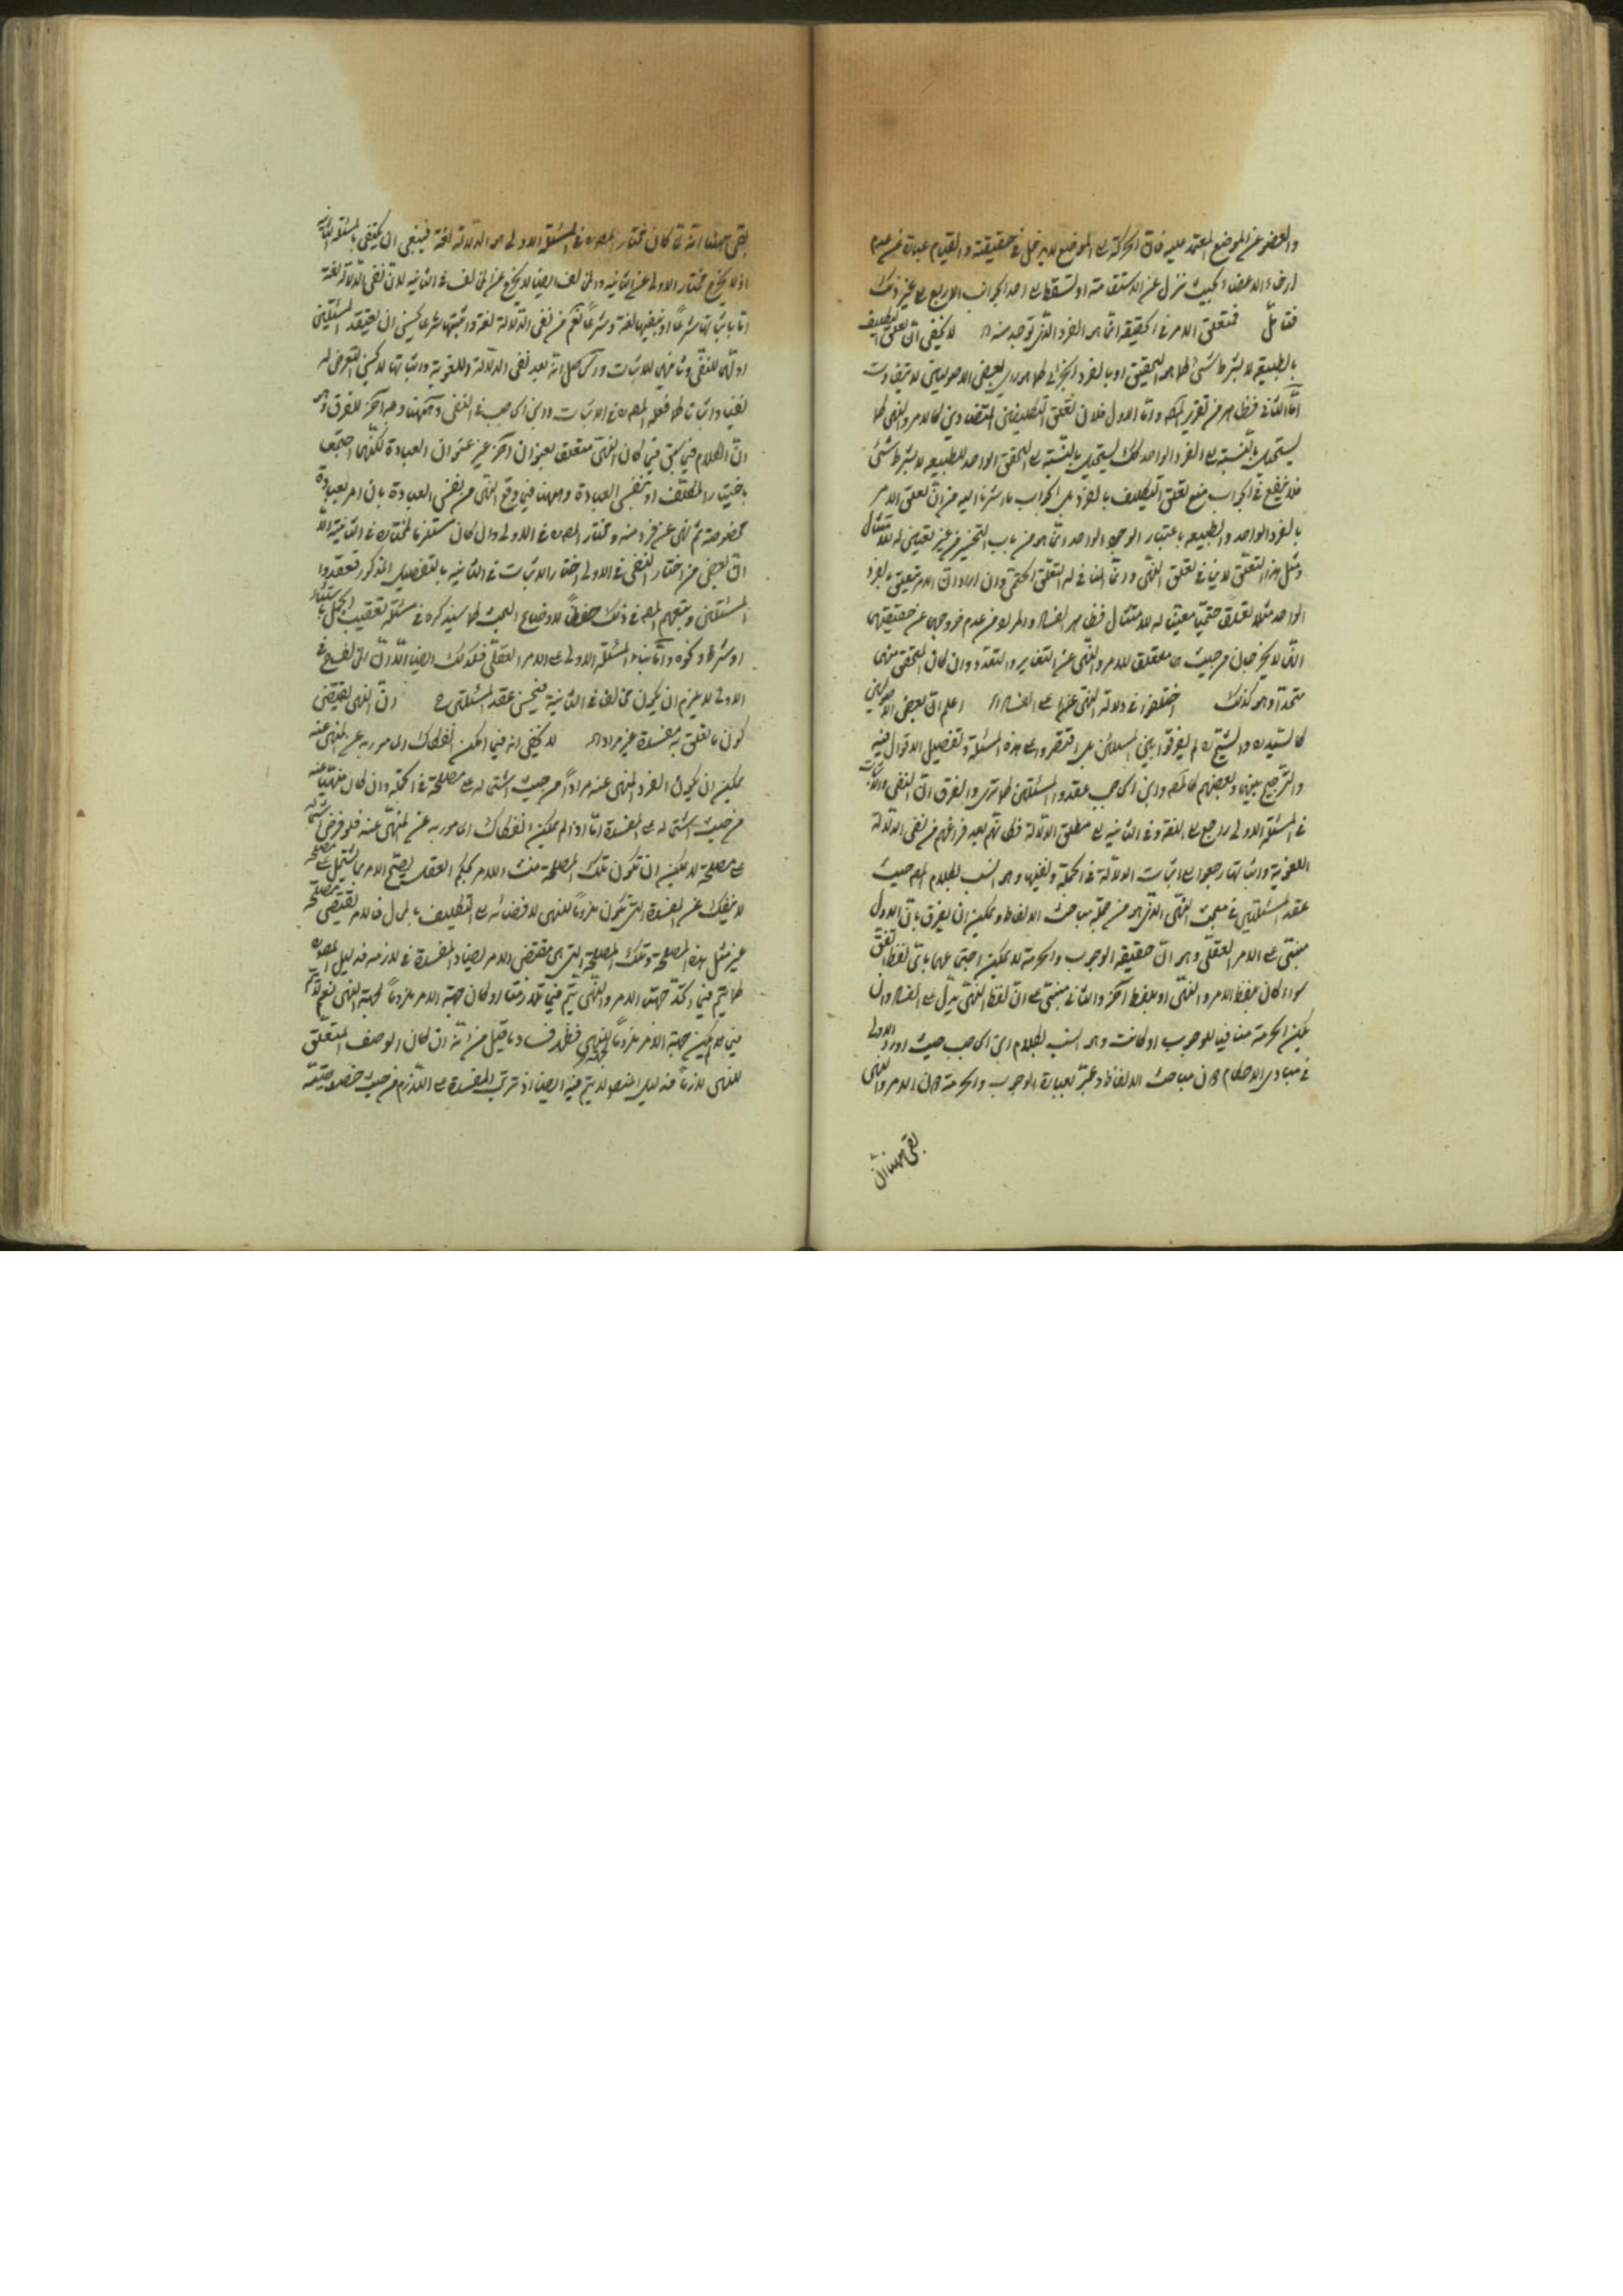 والعضو عن الموضع المعتمد عليه فان الحركة الى المواضع لا يدخل في حقيقته والقيام عبارة عن عدم
ارخاء الاعضاء بحيث ينزل عن الاستقامة او لسقط الى احد الجوانب الاربع الى غير ذلك
فتامل فمتعلق الامر في الحقيقة انما هو الفرد الذى توجد منه لا يخفى ان تعلق التكليف
بالطبيعة لا بشرط شئ كما هو التحقيق او بالفرد الجزئى كما هو راى بعض الاصوليين لا يتفاوت
اما الثانى فظاهر من تقرير المصنف واما الاول فلان تعلق التكليفين المتضادين كالامر والنهى كما
يستحيل بالنسبة الى الفرد الواحد كذلك يستحيل بالنسبة الى المتحقق الواحد للطبيعة لا بشرط شئ
فلا ينفع في الجواب منع تعلق التكليف بالفرد بل الجواب ما اشرنا اليه من ان تعلق الامر
بالفرد الواحد والطبيعة باعتبار الوجود الواحد انما هو من باب التخيير من غير تعيين له للامتثال
ومثل هذا التعلق لا ينافى تعلق النهى وانما المنافى له التعلق الحتمى وان اراد ان الامر يتعلق بالفرد
الواحد مثلا تعلقا حتميا معينا له للامتثال فظاهر الفساد
الذى لا يجز من حيث متعلق للامر والنهى عن التغاير والتعدد وان كان المتحقق منهى
متحدا وهو كذلك اختلفوا في دلالة النهى عنها على الفساد اعلم ان بعض الاصوليين
كالسيد ره والشيخ ره لم يفرقوا بين المسئلتين بل اقتصروا على هذه المسئلة وتفصيل الاقوال فيه
والترجيح بينها وبعضهم كالمصنف وابن الحاجب عقدوا المسئلتين كما ترى والفرق ان النفى والاثبات
في المسئلة الاولى راجع الى اللغة وفي الثانية الى مطلق الدلالة فكانهم بعد فراغهم من نفى الدلالة
اللغوية واثباتها رجعوا الى اثبات الدلالة في الجملة ونفيها وهو انسب بكلام المصنف حيث
عقد المسئلتين في مبحث النهى الذى هو من جملة مباحث الالفاظ ويمكن ان يفرق بان الاول
مبتنى على الامر العقلى وهو ان حقيقة الوجوب والحرمة لا يمكن اجتماعهما باى لفظ اتفق
سواء كان بلفظ الامر والنهى او بلفظ آخر والثانى مبتنى على ان لفظ النهى يدل على الفساد وان
لم يكن الحرمة منافيا للوجوب او كانت وهو انسب بكلام ابن الحاجب حيث اورد الاولى
في مبادى الاحكام دون مباحث الالفاظ وعبر بعبارة الوجوب والحرمة دون الامر والنهى
بقى ههنا انه
بقى ههنا انه لما كان مختار المصنف ره في المسئلة الاولى هو الدلالة لغة فينبغى ان يكتفى بالمسئلة الثانية
اذ لا يخرج مختار الاولى عن الثانية والمخالف ايضا لا يخرج عن المخالف في الثانية لان نفى الدلالة لغة
اما باثباتها شرعا او بنفيها لغة وشرعا نعم من نفى الدلالة لغة واثبتها شرعا يحسن ان يعقد المسئلتين
اولهما للنفى وثانيهما للاثبات والحاصل انه بعد نفى الدلالة اللغوية واثباتها لا يحسن التعرض له
نفيا واثباتا كما فعله المصنف ره في الاثبات وابن الحاجب في النفى وههنا وجه آخر للفرق وهو
ان الكلام فيما سبق فيما كان النهى متعلق بعنوان آخر غير عنوان العبادة لكنهما اجتمعا
باختيار المكلف او بنفس العبادة وههنا فيما وقع النهى عن نفس العبادة بان امر بعبادة
مخصوصة ثم نهى عن فرد منه ومختار المصنف ره في الاولى وان كان مستلزما لمختاره في الثانية الا
ان بعض من اختار النفى في الاولى اختار الاثبات في الثانية بالتفصيل المذكور فعقدوا
المسئلتين وتبعهم المصنف في ذلك حفظا لاوضاع البحث كما سيذكره في مسئلة تعقيب الجمل باستثناء
او شرط ونحوه واما بناء المسئلة الاولى على الامر العقلى فكذلك ايضا
الاولى لا يلزم ان يكون مخالفا في الثانية فيحسن عقد المسئلتين ان النهى يقتضى
كون ما تعلق به مفسدة غير مراد اه لا يخفى انه فيما امكن انفكاك المامور به عن المنهى عنه
يمكن ان يكون الفرد المنهى عنه مرادا من حيث اشتماله على مصلحة في الجملة وان كان منهيا عنه
من حيث اشتماله على المفسدة اما اذا لم يمكن انفكاك المامور به عن المنهى عنه فلو فرض اشتماله
على مصلحة لا يمكن ان تكون تلك المصلحة منشاء للامر بحكم العقل
لا ينفك عن المفسدة التى تكون ملزوما للنهى لافضائه الى التكليف بالمحال فالامر يقتضى مصلحة
غير مثل هذه المصلحة وتلك المصلحة التى هى مقتضى الامر يضاد المفسدة في لازمه فدليل المصنف ره
كما يتم فيما اتحد جهتا الامر والنهى يتم فيما تلازمتا او كان جهة الامر ملزوما لجهة النهى نعم لا يتم
فيما لم يكن جهة الامر ملزوما لجهة النهى فظهر فساد ما قيل من انه ان كان الوصف المتعلق
للنهى لازما فدليل المصنف لا يتم فيه ايضا اذ ترتب المفسدة على اللازم من حيث خصوصيته